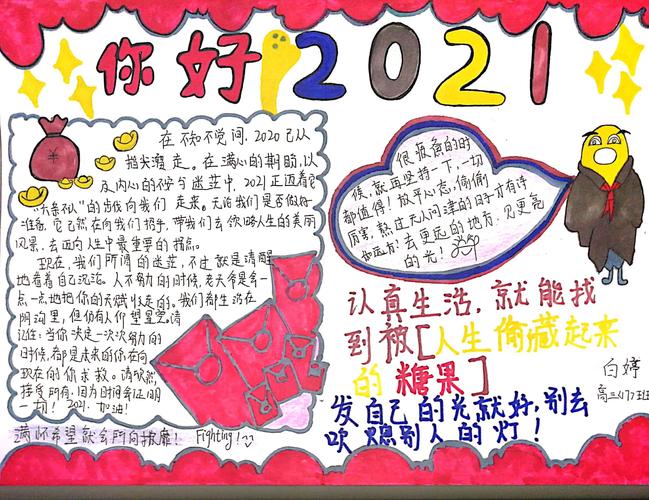 你好 2021
在不知不觉间，2020已从
指尖溜走。在满心的期盼，以
及内心的不安与迷茫中，2021正迈着它
"六亲不认"的步伐向我们走来。无论我们是否做好
准备，它已然在向我们招手，带我们去领略人生的美丽
风景，去迈向人生中最重要的拐点。
现在，我们所谓的迷茫，不过就是清醒
地看着自己沉沦。人不努力的时候，老天爷是会一
点一点地把你的天赋收走的。我们都生活在
阴沟里，但仍有人仰望星空。请
记住：当你决定一次次努力的
时候，都是未来的你在向
现在的你求救。请欣然
接受所有，因为时间会证明
一切！2021，加油！
满怀希望就会所向披靡！ Fighting！
很疲惫的时
候，就再坚持一下，一切
都值得！放平心态，偷偷
厉害，熬过无人问津的日子才有诗
和远方！去更远的地方，见更亮
的光！
认真生活，就能找
到被[人生偷藏起来
的糖果]
发自己的光就好，别去
吹熄别人的灯！
白婷
高三(17)班